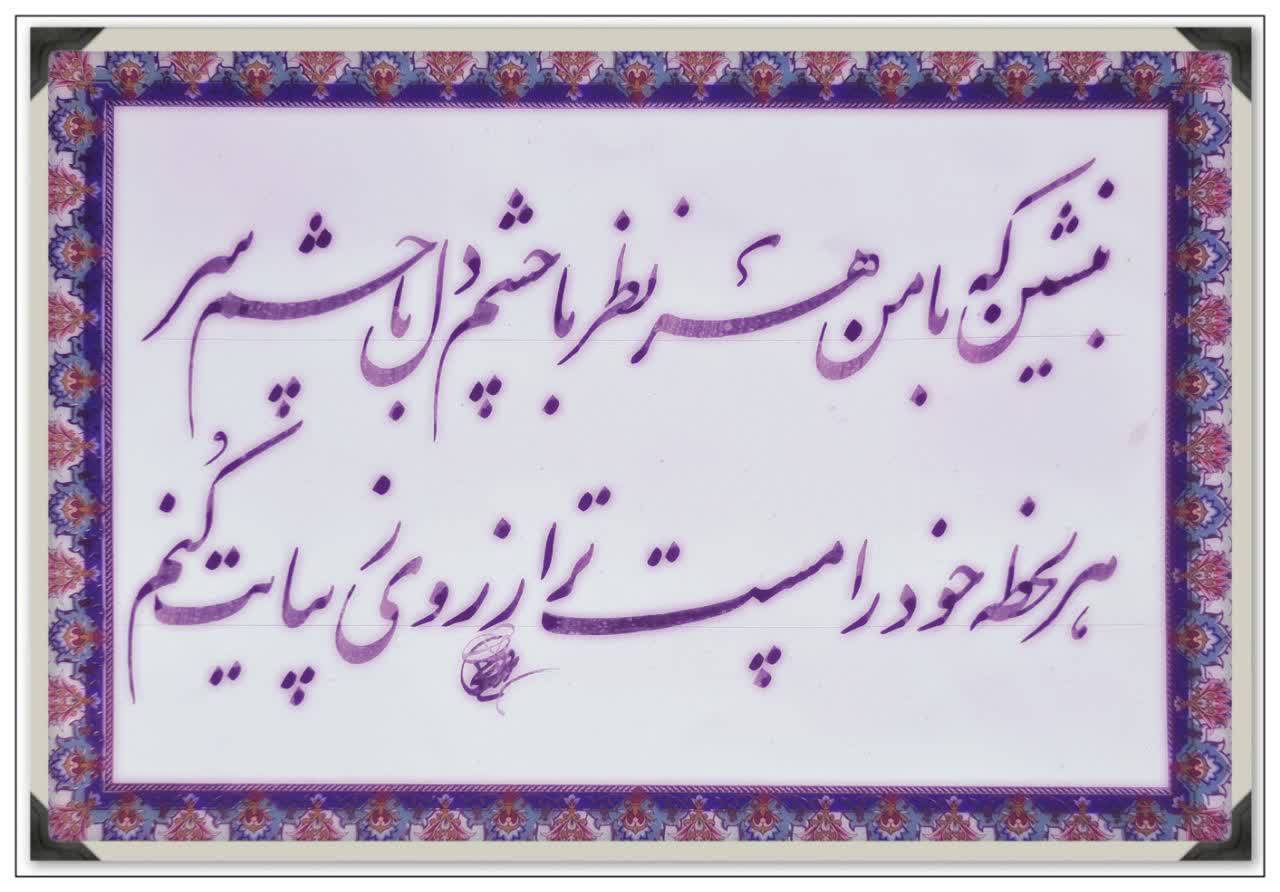 بنشین که با من هر نظر با چشم دل با چشم سر
هر لحظه خود را مست تر از روی زیبایت کنم